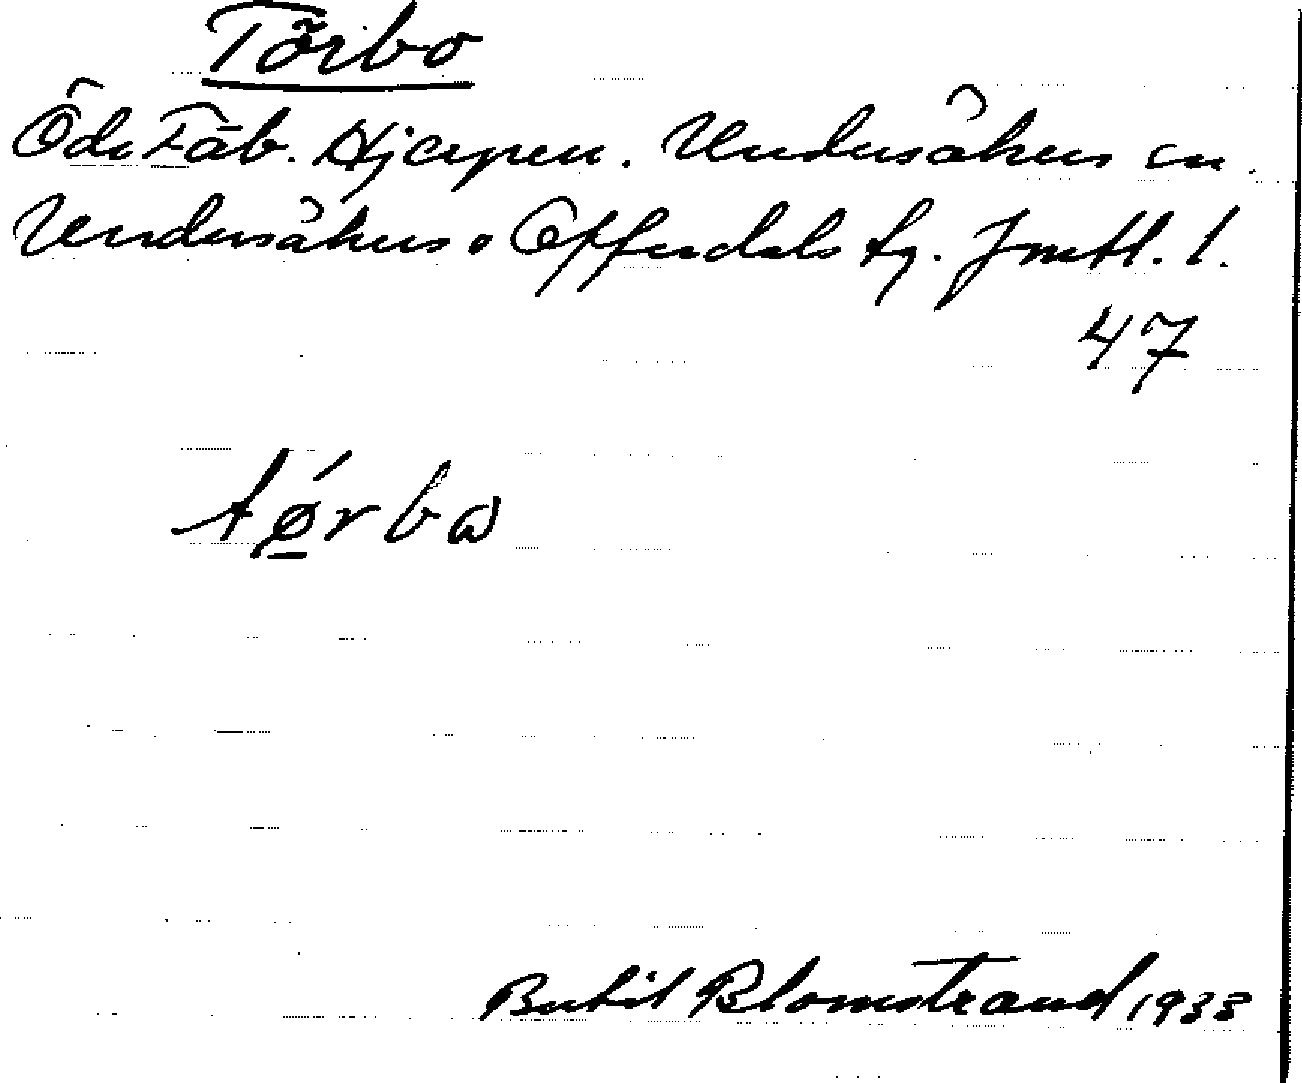 Törbo
Öde Fäb. Hjerpen. Undersåkers sn.
Undersåkers o Offerdals tg. Jmtl. l.
47
tǿ̱rbω
Bertil Blomstrand 1933